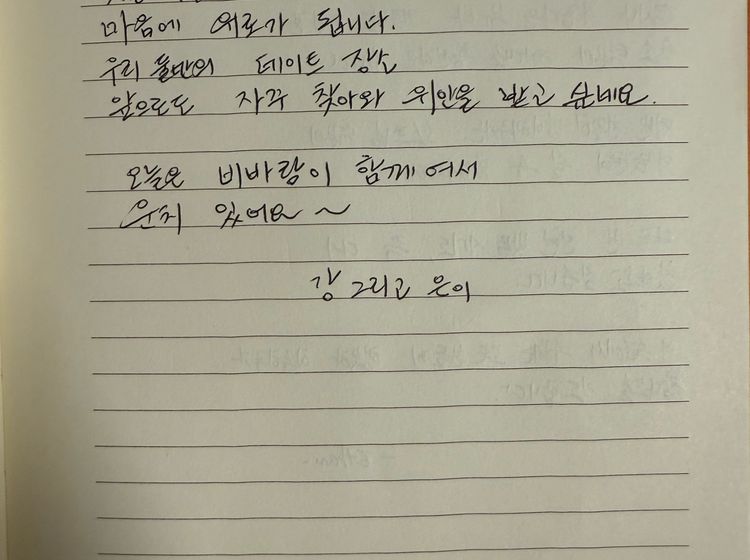 마음에 위로가 됩니다.
우리 둘만의 데이트 장소
앞으로도 자꾸 찾아와 위안을 받고 싶네요.
오늘은 비바람이 함께 여서
운치 있어요 ~
강 그리고 은이